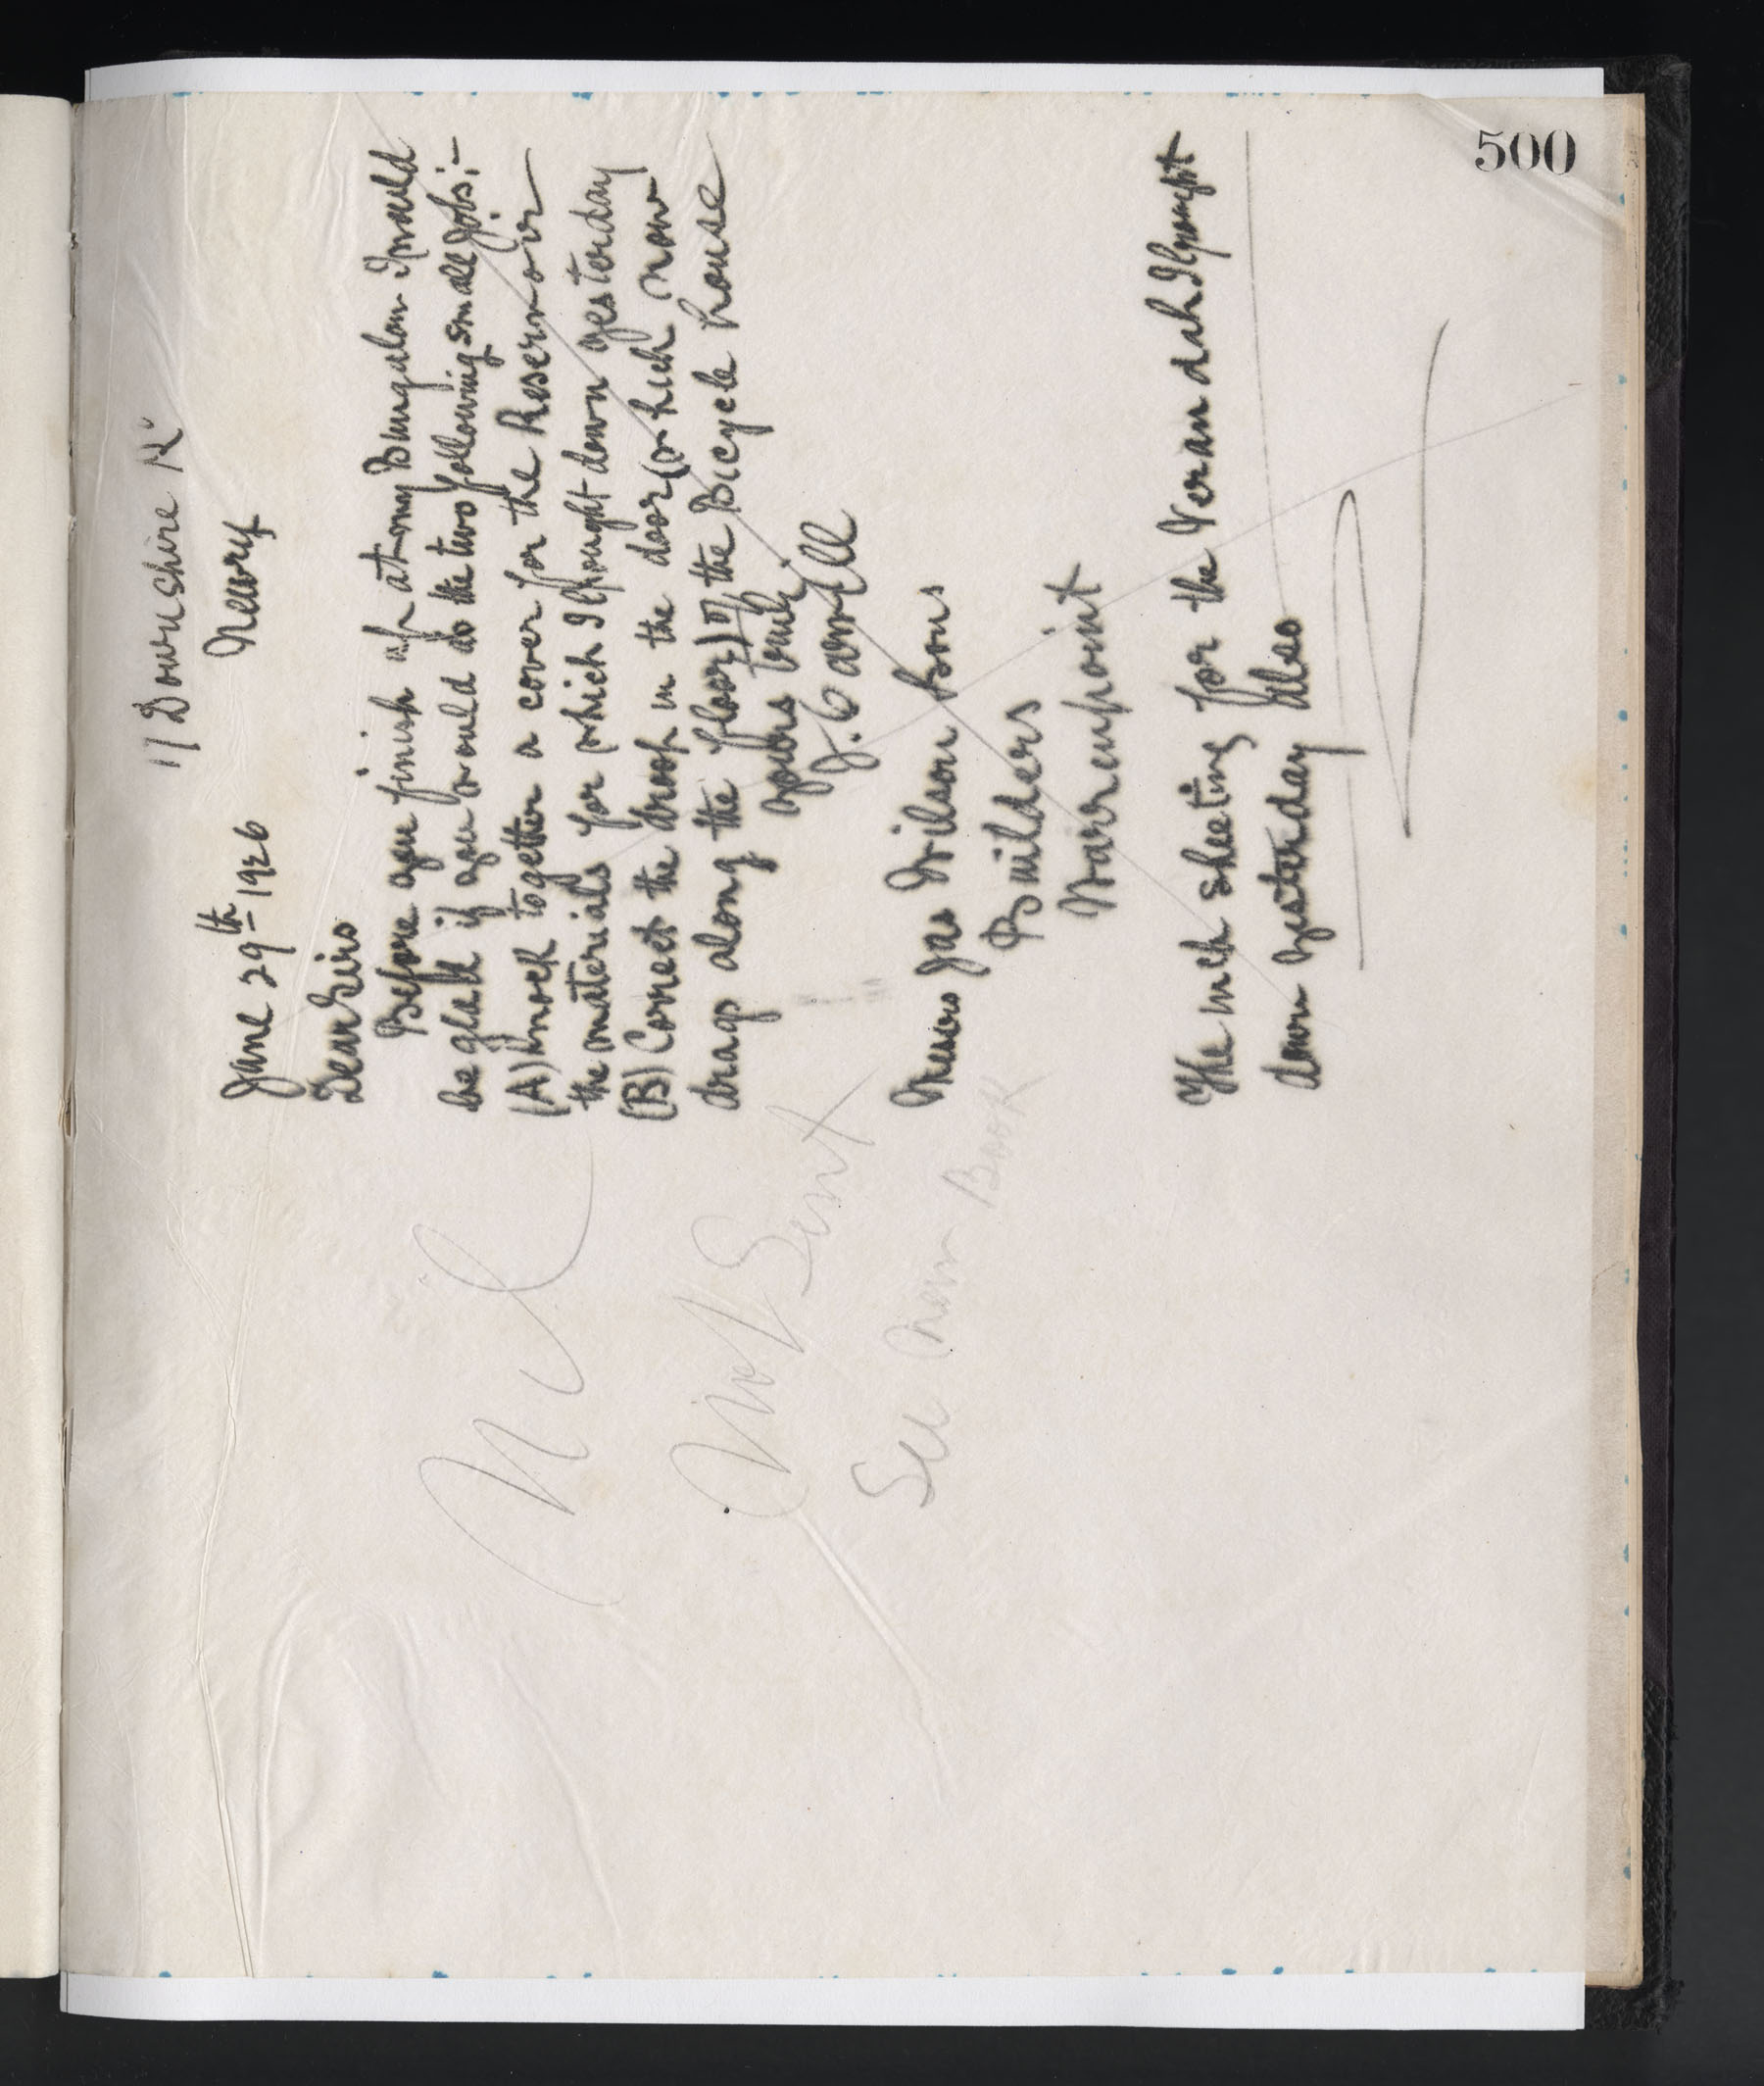 500
17 Downshire Rd
Newry
June 29th 1926
Dear Sirs
Before you finish up at my Bungalow I would
be glad if you would do the two following small jobs:-
(A) Knock together a cover for the Reservoir
the materials for which I brought down yesterday
(B) Correct the droop in the door (which now
drags along the floor) of the Bicycle house
yours truly
J. Carvill
Messrs Jas Wilson & Sons
Builders
Warrenpoint
The inch sheeting for the Verandah I brought
down yesterday also
Not Sent
See New Book